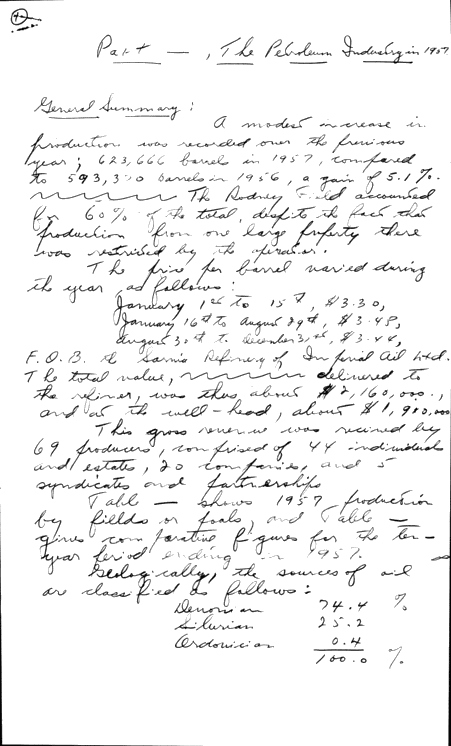 4
Part — , The Petroleum Industry in 1957
General Summary :
A modest increase in
production was recorded over the previous
year ; 623,666 barrels in 1957, compared
to 593,370 barrels in 1956, a gain of 5.1 %.
The Rodney Field accounted
for 60% of the total, despite the fact that
production from one large property there
was restricted by the operator.
The price per barrel varied during
the year, as follows :
January 1st to 15th, $3.30,
January 16th to August 29th, $3.48,
August 30th to December 31st, $3.44,
F.O.B. the Sarnia Refinery of Imperial Oil Ltd.
The total value, delivered to
the refiner, was thus about $2,160,000.,
and at the well-head, about $1,980,000
This gross revenue was received by
69 producers, comprised of 44 individuals
and estates, 20 companies, and 5
syndicates and partnerships
Table — shows 1957 production
by fields or pools, and Table —
gives comparative figures for the ten-
year period ending in 1957.
Geologically, the sources of oil
are classified as follows :
Devonian 74.4 %
Silurian 25.2
Ordovician 0.4
100.0 %